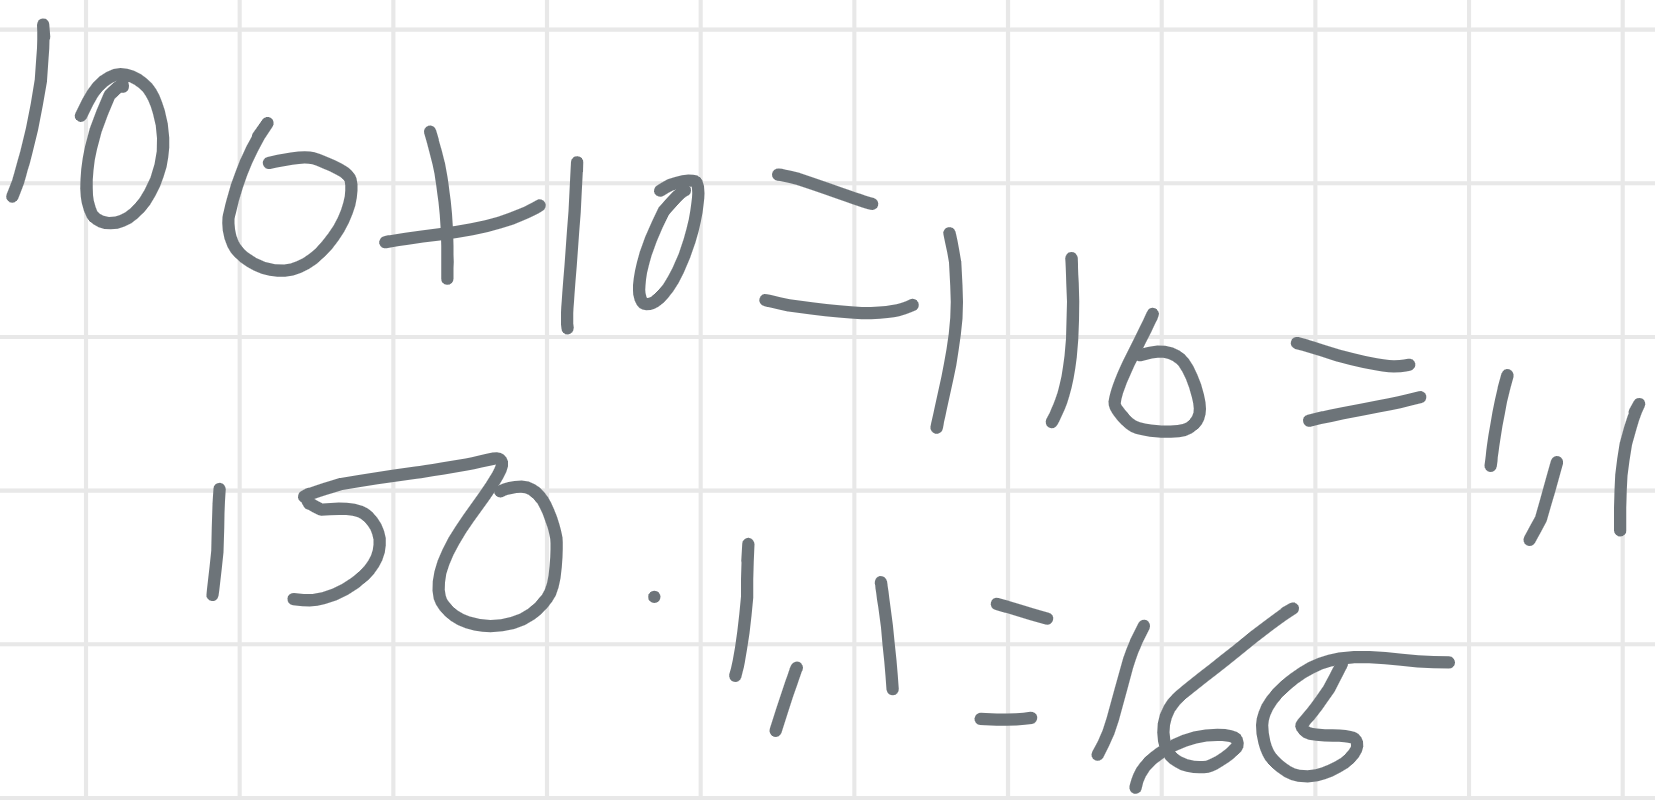 100+10=110=1,1
150·1,1=165